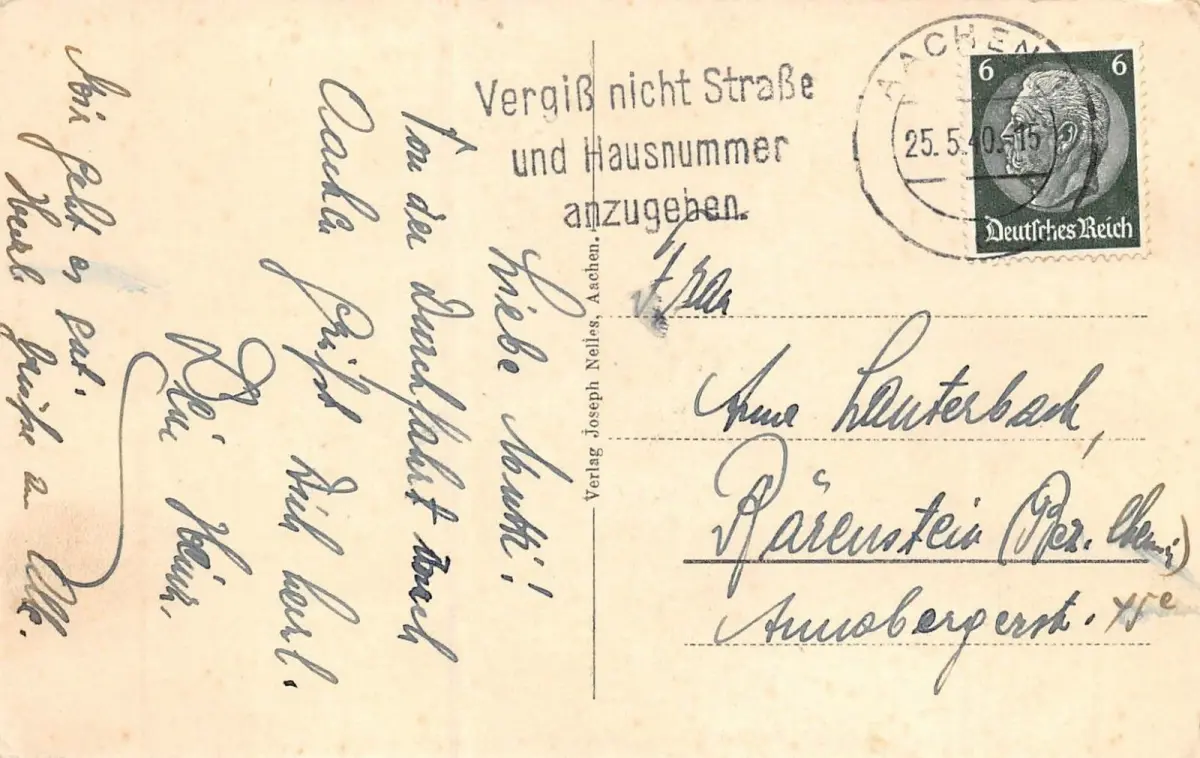 Vergiß nicht Straße
und Hausnummer
anzugeben.
AACHEN
25.5.40.-15
6 6
Deutsches Reich
Liebe Mutti!
Von der Durchfahrt durch
Aachen grüßt Dich herzl.
Dein Heinz.
Mir geht es gut.
Herzl. Grüße an Alle.
Verlag Joseph Nelles, Aachen.
Frau
Anna Lauterbach,
Bärenstein (Bez. Chemn.)
Annabergerstr.